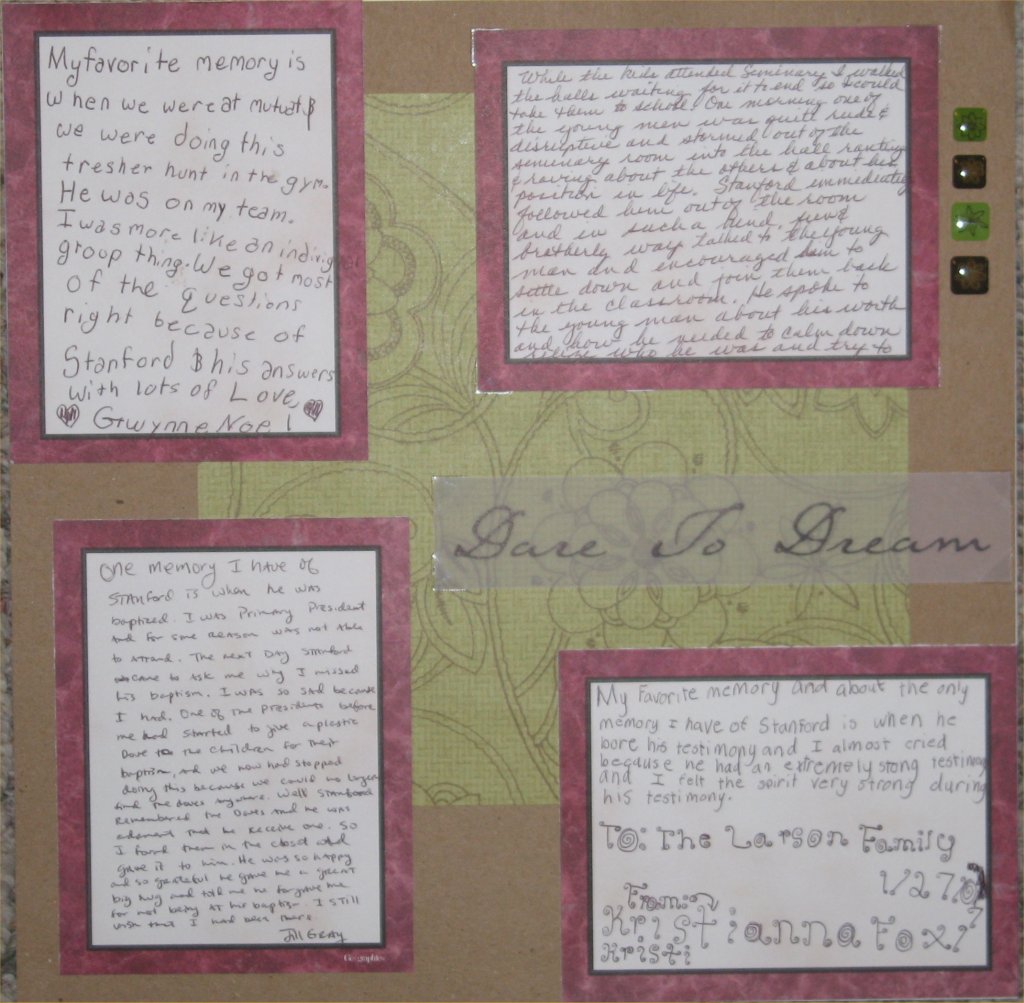 My favorite memory is
when we were at mutual &
we were doing this
tresher hunt in the gym.
He was on my team.
I was more like an indivigual
group thing. We got most
of the questions
right because of
Stanford & his answers
with lots of Love,
Gwynne Noel
While the kids attended Seminary I walked
the halls waiting for it to end so I could
take them to school. One morning one of
the young men was quite rude &
disruptive and stormed out of the
seminary room into the hall ranting
& raving about the others & about his
position in life. Stanford immediately
followed him out of the room
and in such a kind, firm &
brotherly way talked to the young
man and encouraged him to
settle down and join them back
in the classroom. He spoke to
the young man about his worth
and how he needed to calm down
who he was and try to
Dare To Dream
One memory I have of
Stanford is when he was
baptized. I was Primary President
and for some reason was not able
to attend. The next day Stanford
came to ask me why I missed
his baptism. I was so sad because
I had. One of the presidents before
me had started to give a plastic
Dove to the children for their
baptism, and we now had stopped
doing this because we could no longer
find the doves anywhere. Well Stanford
remembered the Doves and he was
adament that he receive one. So
I found them in the closet and
gave it to him. He was so happy
and so grateful he gave me a great
big hug and told me he forgave me
for not being at his baptism. I still
wish that I had been there.
Jill Gray
Geographics
My favorite memory and about the only
memory I have of Stanford is when he
bore his testimony and I almost cried
because he had an extremely stong testimony
and I felt the spirit very strong during
his testimony.
To: The Larson Family
1/27/07
From:
Kristianna Fox!
Kristi